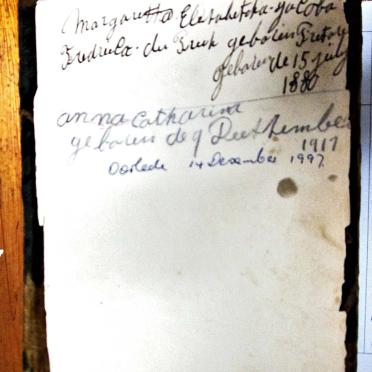 Margaretta Elisabetha Jacoba
Fredrika du Preek geboren Pretori
geboren de 15 july
1880
anna catharina
geboren de 9 Deethember
1917
Oorlede 14 Desember 1997